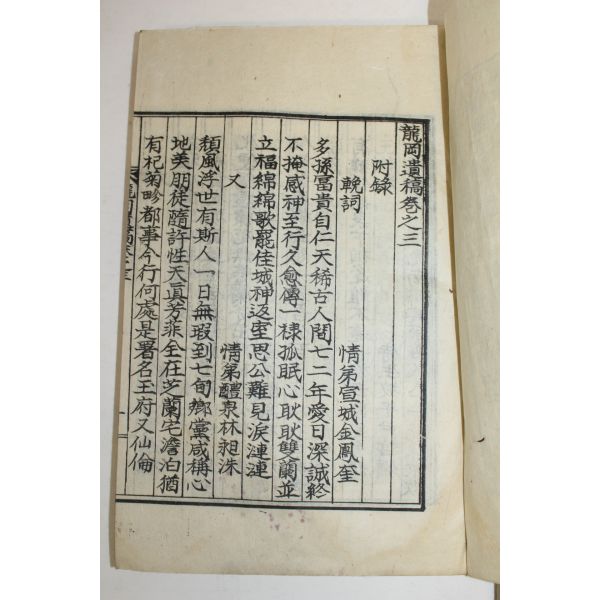 龍岡遺稿卷之三
附錄
輓詞
情弟宣城金鳳奎
多孫富貴自仁天稀古人間七二年愛日深誠終
不掩感神至行久愈傳一棣孤眠心耿耿雙蘭並
立福綿綿歌罷佳城神返室思公難見淚漣漣
又
情弟醴泉林昶洙
頹風浮世有斯人一日無瑕到七旬鄉黨咸稱心
地美朋徒隨許性天眞芳菲全在芝蘭宅澹泊猶
有杞菊畛都事今行何處是署名王府又仙倫